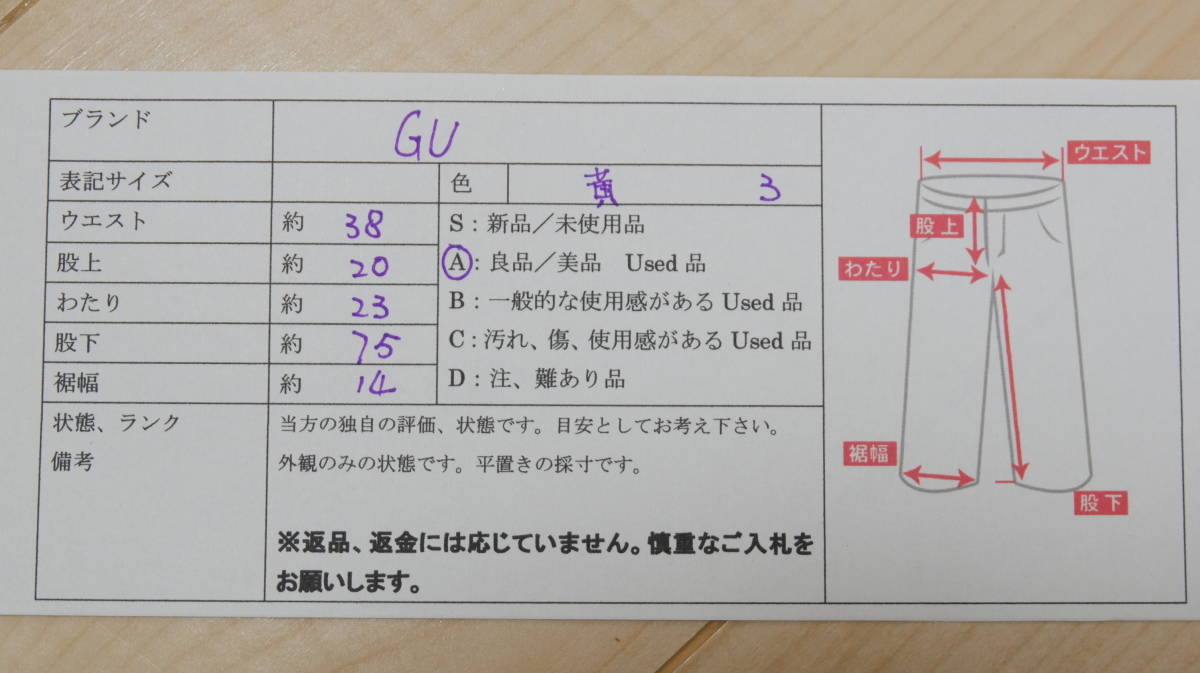 ブランド GU
表記サイズ 色 黄 3
ウエスト 約 38
股上 約 20
わたり 約 23
股下 約 75
裾幅 約 14
S：新品／未使用品
A：良品／美品 Used 品
B：一般的な使用感がある Used 品
C：汚れ、傷、使用感がある Used 品
D：注、難あり品
状態、ランク
備考
当方の独自の評価、状態です。目安としてお考え下さい。
外観のみの状態です。平置きの採寸です。
※返品、返金には応じていません。慎重なご入札を
お願いします。
ウエスト
股上
わたり
裾幅
股下